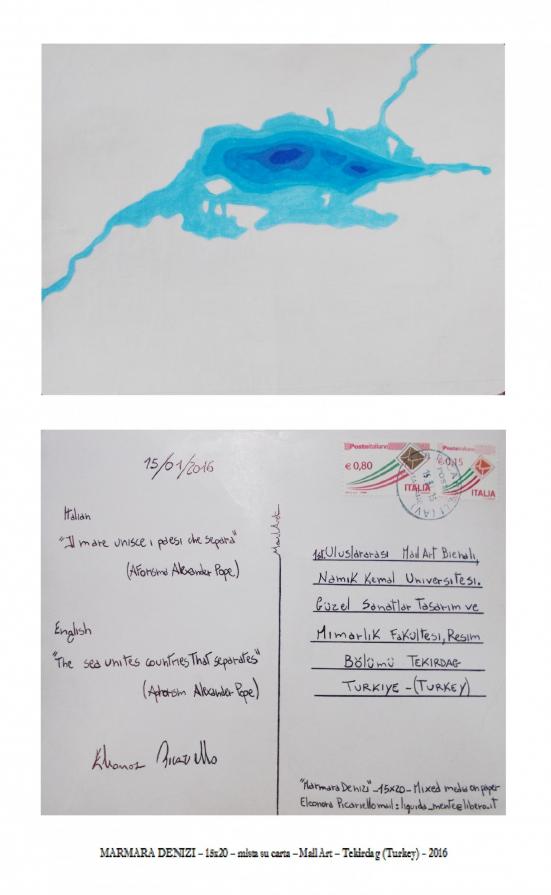 15/01/2016
Posteitaliane
€ 0,80
ITALIA
Posteitaliane
€ 0,15
ITALIA
Italian
"Il mare unisce i paesi che separa"
(Aforisma Alexander Pope)
English
"The sea unites countries that separates"
(Aphorism Alexander Pope)
Eleonora Picariello
Mail Art
1st Uluslararası Mail Art Bienali,
Namık Kemal Universitesi.
Güzel Sanatlar Tasarım ve
Mimarlık Fakültesi, Resim
Bölümü TEKIRDAG
TURKIYE - (TURKEY)
"Marmara Denizi" - 15x20 - Mixed media on paper
Eleonora Picariello mail: liquida_mente@libero.it
MARMARA DENIZI – 15x20 – mista su carta – Mail Art – Tekirdag (Turkey) - 2016